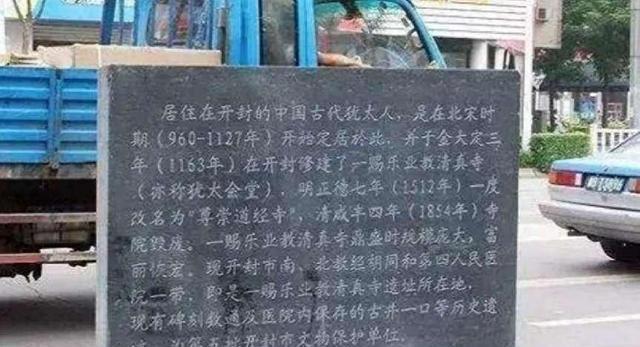 居住在开封的中国古代犹太人，是在北宋时
期（960-1127年）开始定居於此，并于金大定三
年（1163年）在开封修建了一赐乐业教清真寺
（亦称犹太会堂）。明正德七年（1512年）一度
改名为"尊崇道经寺"，清咸丰四年（1854年）寺
院毁废。一赐乐业教清真寺鼎盛时规模庞大，富
丽恢宏。现开封市南、北教经胡同和第四人民医
院一带，即是一赐乐业教清真寺遗址所在地，
现有碑刻数通及医院内保存的古井一口等历史遗
为第五批开封市文物保护单位。